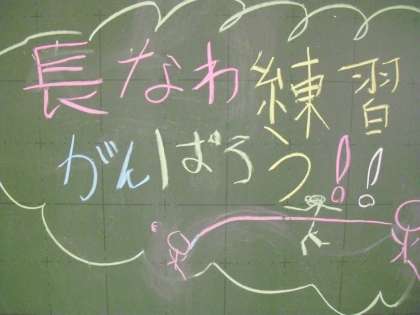 長なわ練習
がんばろう!!